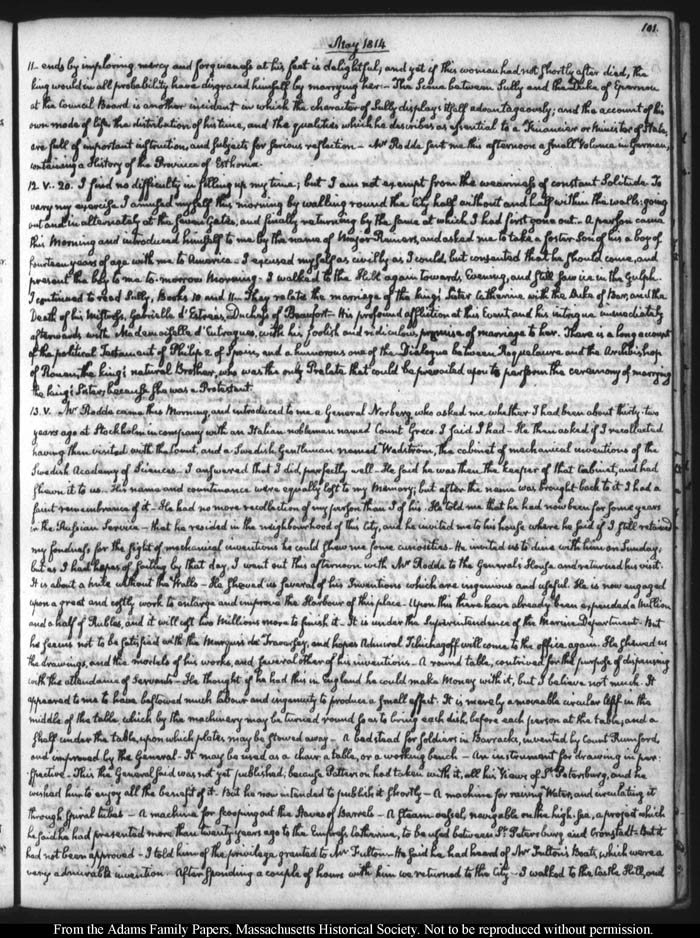 101.
May 1814
11. ends by imploring mercy and forgiveness at his feet is delightful; and yet if this woman had not shortly after died, the
king would in all probability have disgraced himself by marrying her. The Scene between Sully and the Duke of Epernon
at the Council Board is another incident in which the character of Sully displays itself advantageously; and the account of his
own mode of life, the distribution of his time, and the qualities which he describes as essential to a Financier or Minister of State,
are full of important instruction, and subjects for serious reflection — Mr Rodde sent me this afternoon a small Volume in German,
containing a History of the Province of Esthonia.
12. V. 20. I find no difficulty in filling up my time; but I am not exempt from the weariness of constant Solitude. To
vary my exercise I amused myself this morning by walking round the City half without and half within the walls: going
out and in alternately at the seven Gates, and finally returning by the same at which I had first gone out. A person came
this Morning and introduced himself to me by the name of Major Reimers, and asked me to take a foster-Son of his a boy of
fourteen years of age with me to America. I excused myself as civilly as I could, but consented that he should come, and
present the boy to me to-morrow Morning. I walked to the Hill again towards Evening, and still saw ice in the Gulph.
I continued to read Sully, Books 10 and 11. They relate the marriage of the king's Sister Catherine with the Duke of Bar, and the
Death of his Mistress, Gabrielle d'Estrées, Duchess of Beaufort. His profound affliction at this Event, and his intrigue immediately
afterwards with Mademoiselle d'Entragues, with his foolish and ridiculous promise of marriage to her. There is a long account
of the political Testament of Philip 2. of Spain, and a humorous one of the Dialogue between Roquelaure and the Archbishop
of Rouen, the king's natural Brother, who was the only Prelate that could be prevailed upon to perform the ceremony of marrying
the king's Sister because she was a Protestant.
13. V. Mr Rodde came this Morning, and introduced to me a General Norberg who asked me whether I had been about thirty-two
years ago at Stockholm in company with an Italian nobleman named Count Greco. I said I had — He then asked if I recollected
having then visited with the Count, and a Swedish Gentleman named Wadstrom, the cabinet of mechanical inventions of the
Swedish Academy of Sciences. I answered that I did, perfectly well. He said he was then the keeper of that Cabinet, and had
shewn it to us. His name and countenance were equally lost to my Memory; but after the name was brought back to it I had a
faint remembrance of it. He had no more recollection of my person than I of his. He told me that he had now been for some years
in the Russian Service — that he resided in the neighbourhood of this City, and he invited me to his house where he said if I still retained
my fondness for the sight of mechanical inventions he could shew me some curiosities. He invited us to dine with him on Sunday;
but as I had hopes of sailing by that day, I went out this afternoon with Mr Rodde to the General's House and returned his visit.
It is about a mile without the Walls — He shewed us several of his Inventions which are ingenious and useful. He is now engaged
upon a great and costly work to enlarge and improve the Harbour of this place. Upon this there have already been expended a Million
and a half of Rubles, and it will cost two Millions more to finish it. It is under the Superintendence of the Marine Department. But
he seems not to be satisfied with the Marquis de Traversay, and hopes Admiral Tchichagoff will come to the office again. He shewed us
the drawings, and the models of his works, and several other of his inventions. A round table, contrived for the purpose of dispensing
with the attendance of Servants. He thought if he had this in England he could make Money with it, but I believe not much. It
appeared to me to have bestowed much labour and ingenuity to produce a small effect. It is merely a moveable circular in the
middle of the table, which by the machinery may be turned round so as to bring each dish, before each person at the table, and a
shelf under the table, upon which plates may be stowed away — A bedstead for soldiers in Barracks, invented by Count Rumford,
and improved by the General. It may be used as a chair a table, or a working bench — An instrument for drawing in per-
spective. This the General said was not yet published; because Patterson had taken with it, all his Views of St. Petersburg, and he
wished him to enjoy all the benefit of it. But he now intended to publish it shortly — A machine for raising Water, and circulating it
through spiral tubes — A machine for scooping out the Staves of Barrels — A Steam vessel, navigable on the high-Sea, a project which
he said he had presented more than twenty years ago to the Empress Catherine, to be used between St. Petersburg and Cronstadt. But it
had not been approved — I told him of the privilege granted to Mr Fulton — He said he had heard of Mr Fulton's Boats, which were a
very admirable invention. After spending a couple of hours with him we returned to the City — I walked to the Castle Hill, and
From the Adams Family Papers, Massachusetts Historical Society. Not to be reproduced without permission.